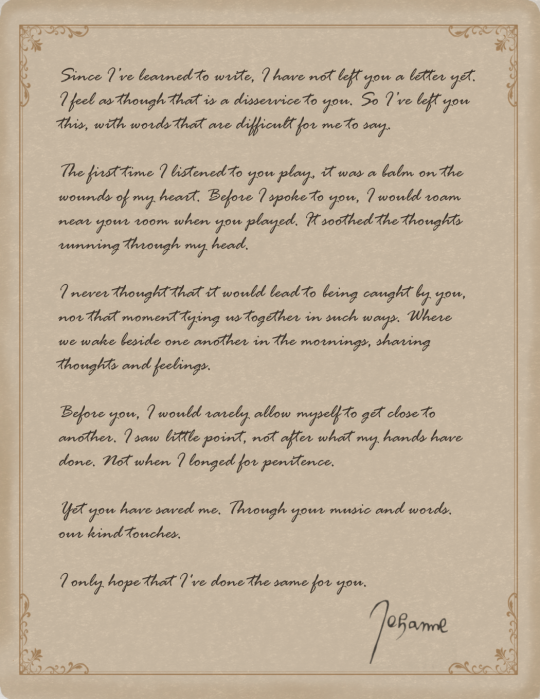 Since I've learned to write, I have not left you a letter yet.
I feel as though that is a disservice to you. So I've left you
this, with words that are difficult for me to say.
The first time I listened to you play, it was a balm on the
wounds of my heart. Before I spoke to you, I would roam
near your room when you played. It soothed the thoughts
running through my head.
I never thought that it would lead to being caught by you,
nor that moment tying us together in such ways. Where
we wake beside one another in the mornings, sharing
thoughts and feelings.
Before you, I would rarely allow myself to get close to
another. I saw little point, not after what my hands have
done. Not when I longed for penitence.
Yet you have saved me. Through your music and words.
our kind touches.
I only hope that I've done the same for you.
Johanne